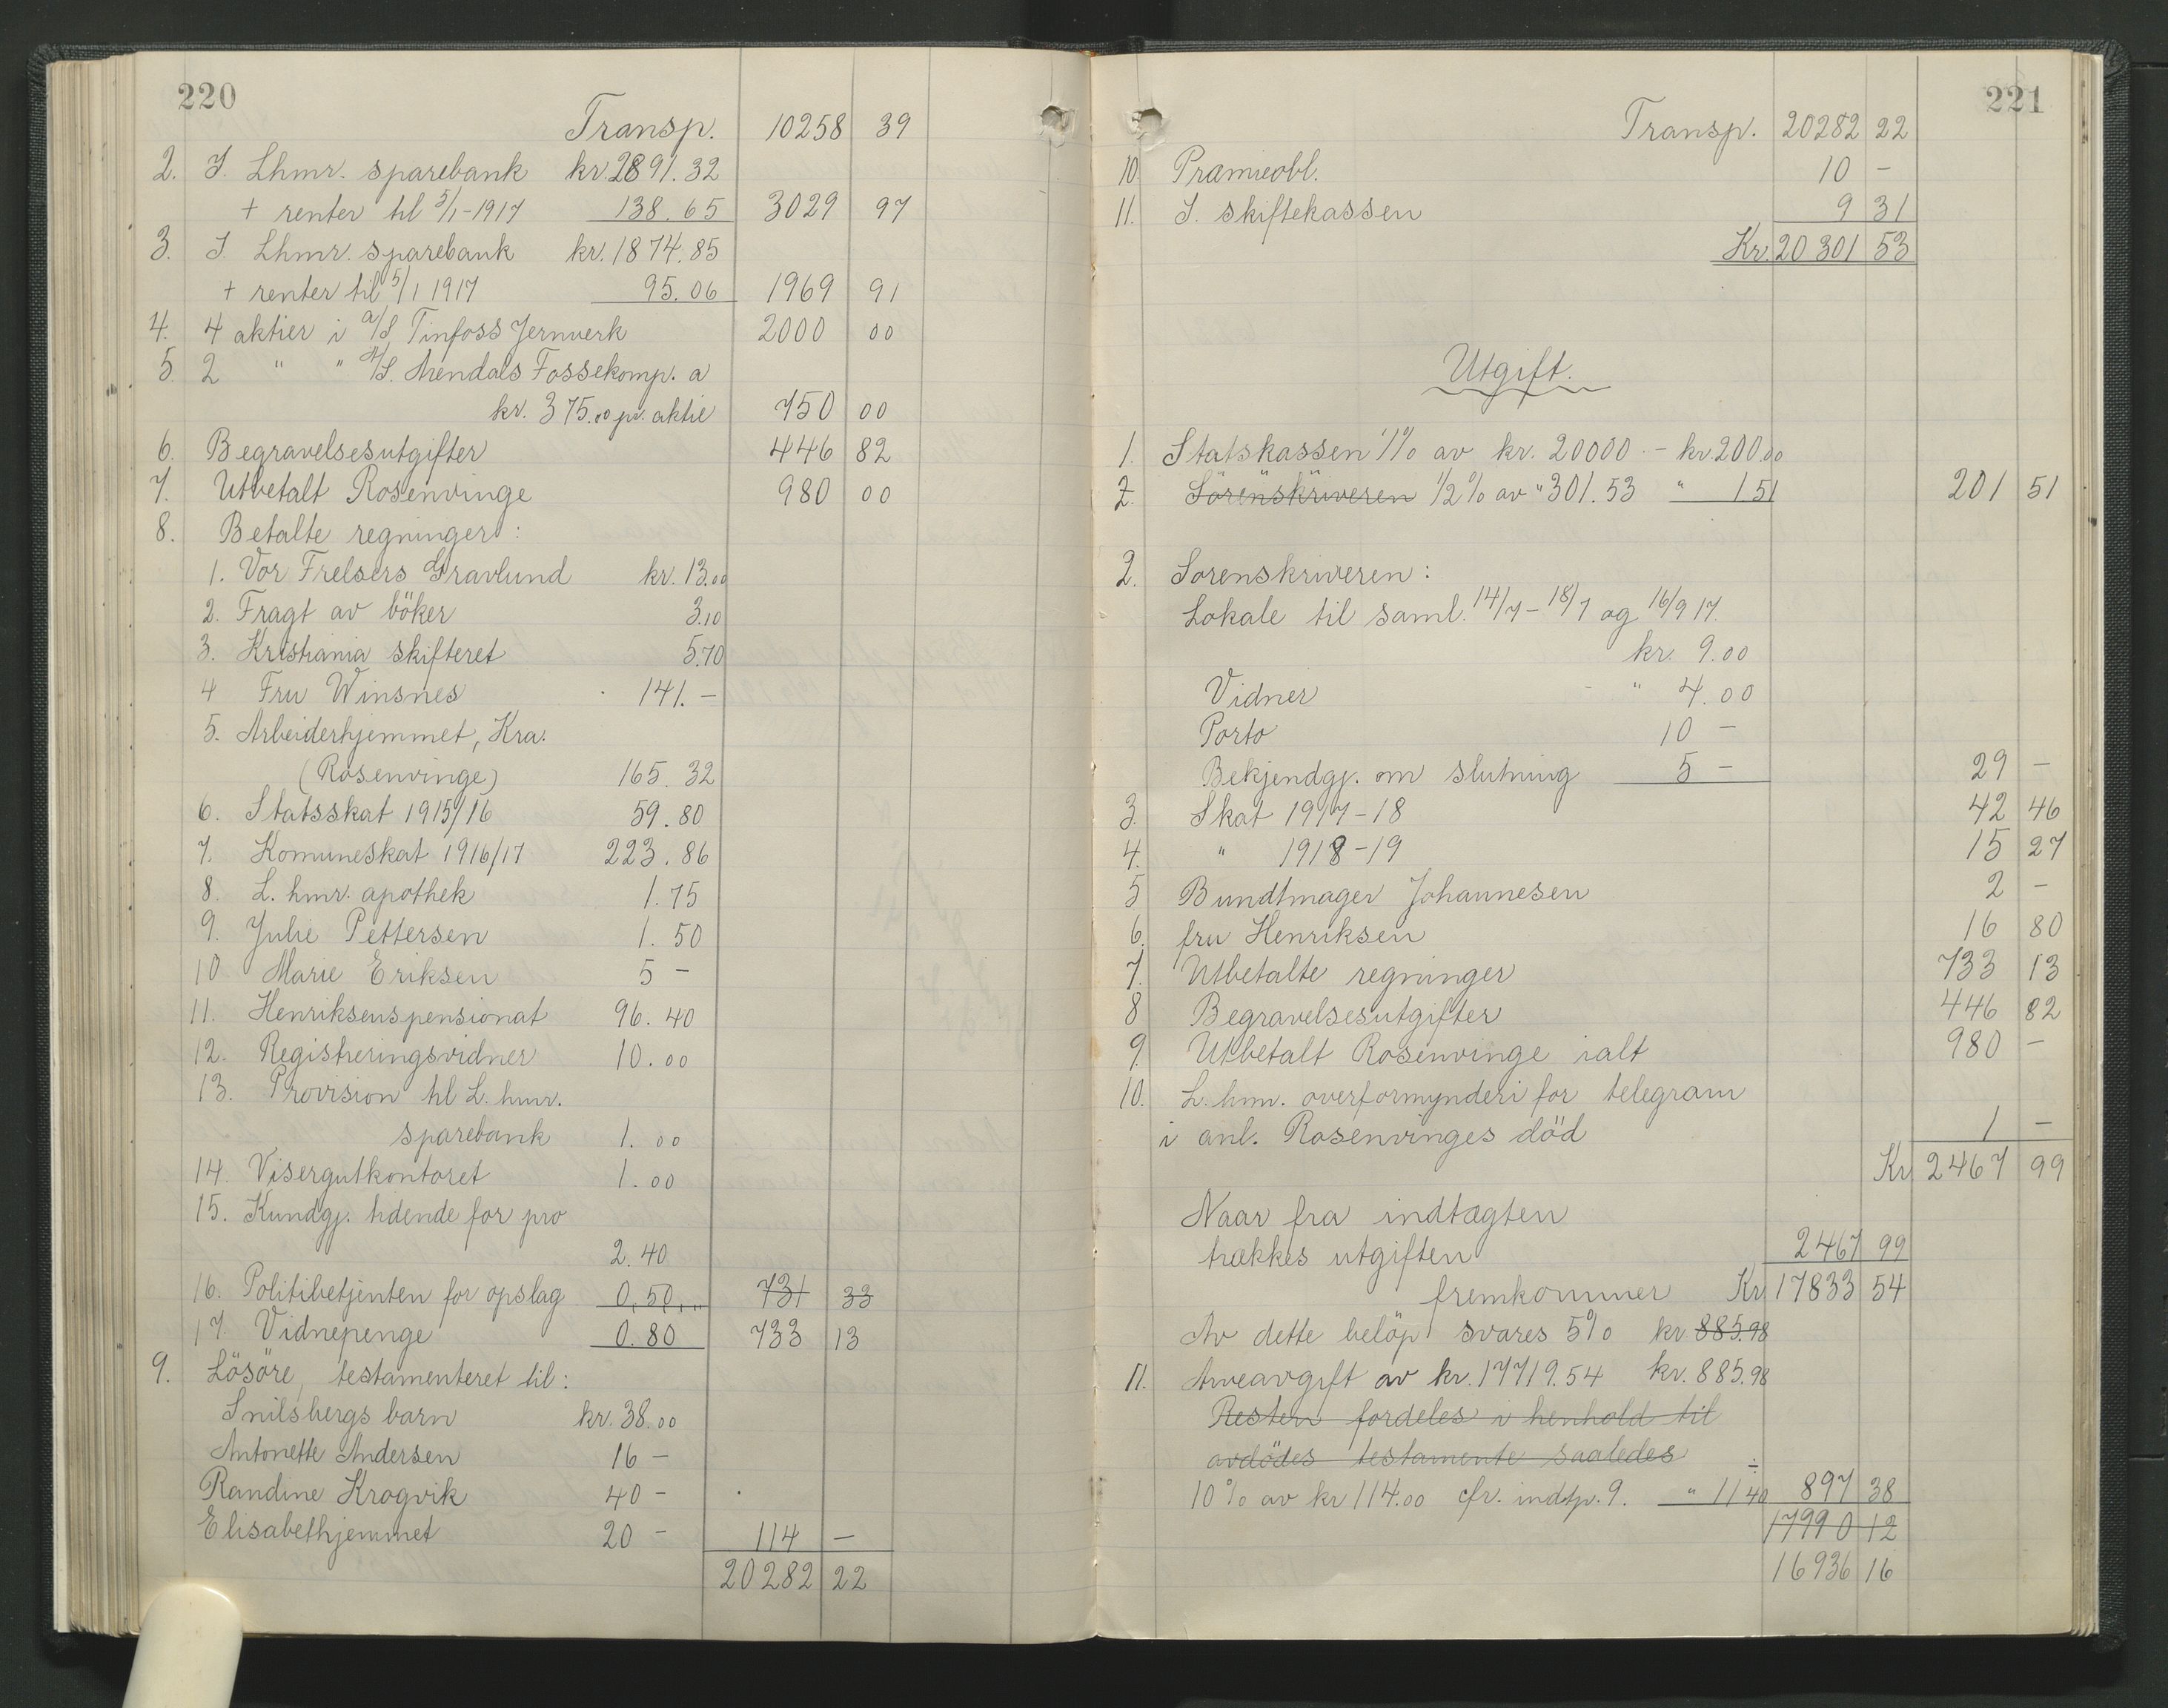 220
Transp. 10258 39
2. I. Lhmr. sparebank kr. 2891.32
+ renter til 5/1-1917 138.65 3029 97
3. I. Lhmr. sparebank kr. 1874.85
+ renter til 5/1 1917 95.06 1969 91
4. 4 aktier i a/S Tinfoss Jernverk 2000 00
5. 2 " " A/S. Arendals Fossekomp. a
kr. 375.00 pr. aktie 750 00
6. Begravelsesutgifter 446 82
7. Utbetalt Rosenvinge 980 00
8. Betalte regninger:
1. Vor Frelsers Gravlund kr. 13.00
2. Fragt av böker 3.10
3. Kristiania skifteret 5.70
4 Fru Winsnes 141.-
5. Arbeiderhjemmet, Kra.
(Rosenvinge) 165.32
6. Statsskat 1915/16 59.80
7. Komuneskat 1916/17 223.86
8. L. hmr. apothek 1.75
9. Julie Pettersen 1.50
10 Marie Eriksen 5 -
11. Henriksens pensionat 96.40
12. Registreringsvidner 10.00
13. Provision til L. hmr.
sparebank 1.00
14. Visergutkontoret 1.00
15. Kundgj. tidende for pro
2.40
16. Politibetjenten for opslag 0,50,,, 731 33
17. Vidnepenge 0.80 733 13
9. Lösöre, testamenteret til:
Snilsbergs barn kr. 38.00
Antonette Andersen 16 -
Randine Krogvik 40 -
Elisabethjemmet 20 - 114 -
20282 22
221
Transp. 20282 22
10. Præmieobl. 10 -
11. I. skiftekassen 9 31
Kr. 20301 53
Utgift.
1. Statskassen 1% av kr. 20000 - kr. 200.00
2. Sörenskriveren 1/2% av " 301.53 " 1 51 201 51
2. Sorenskriveren:
Lokale til saml. 14/7 - 18/7 og 16/9 17.
kr. 9.00
Vidner " 4.00
Porto 10 -
Bekjendgj. om slutning 5 - 29 -
3. Skat 1917-18 42 46
4. " 1918-19 15 27
5 Bundtmager Johannesen 2 -
6. fru Henriksen 16 80
7. Utbetalte regninger 733 13
8 Begravelsesutgifter 446 82
9. Utbetalt Rosenvinge ialt 980 -
10. L. hmr. overformynderi for telegram
i anl. Rosenvinges död 1 -
Kr 2467 99
Naar fra indtægten
trækkes utgiften 2467 99
fremkommer Kr 17833 54
Av dette belöp svares 5% kr. 885.98
11. Arveavgift av kr. 17719.54 kr. 885.98
Resten fordeles i henhold til
avdödes testamente saaledes ÷
10% av kr 114.00 cfr. indtp. 9. " 11 40 897 38
17990 12
16936 16